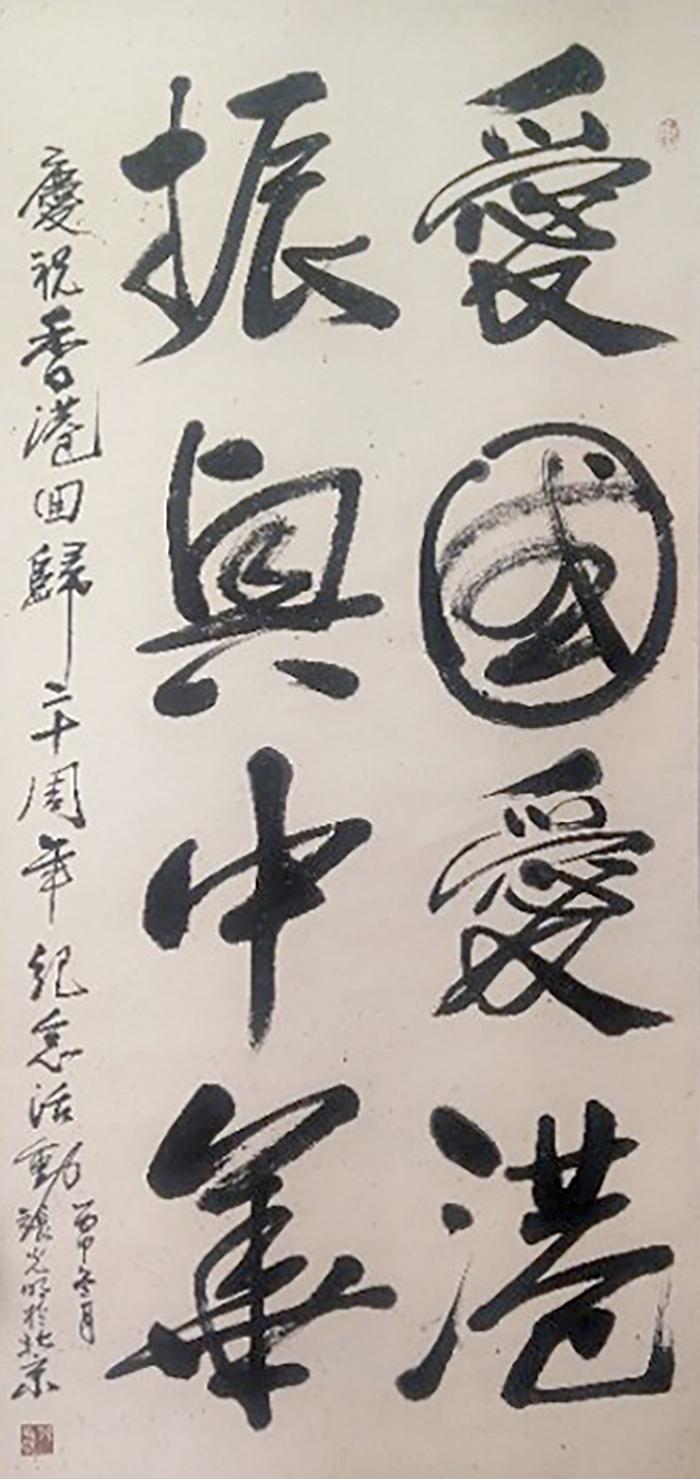 愛國愛港
振興中華
慶祝香港回歸二十周年紀念活動
丙申冬月
張光明於北京